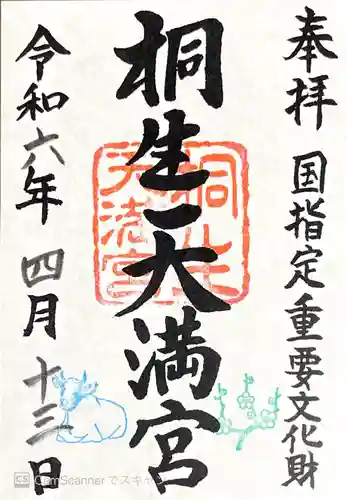 奉拝 国指定重要文化財
桐生天満宮
令和六年 四月十三日
桐生
天満宮
CS CamScanner でスキャン